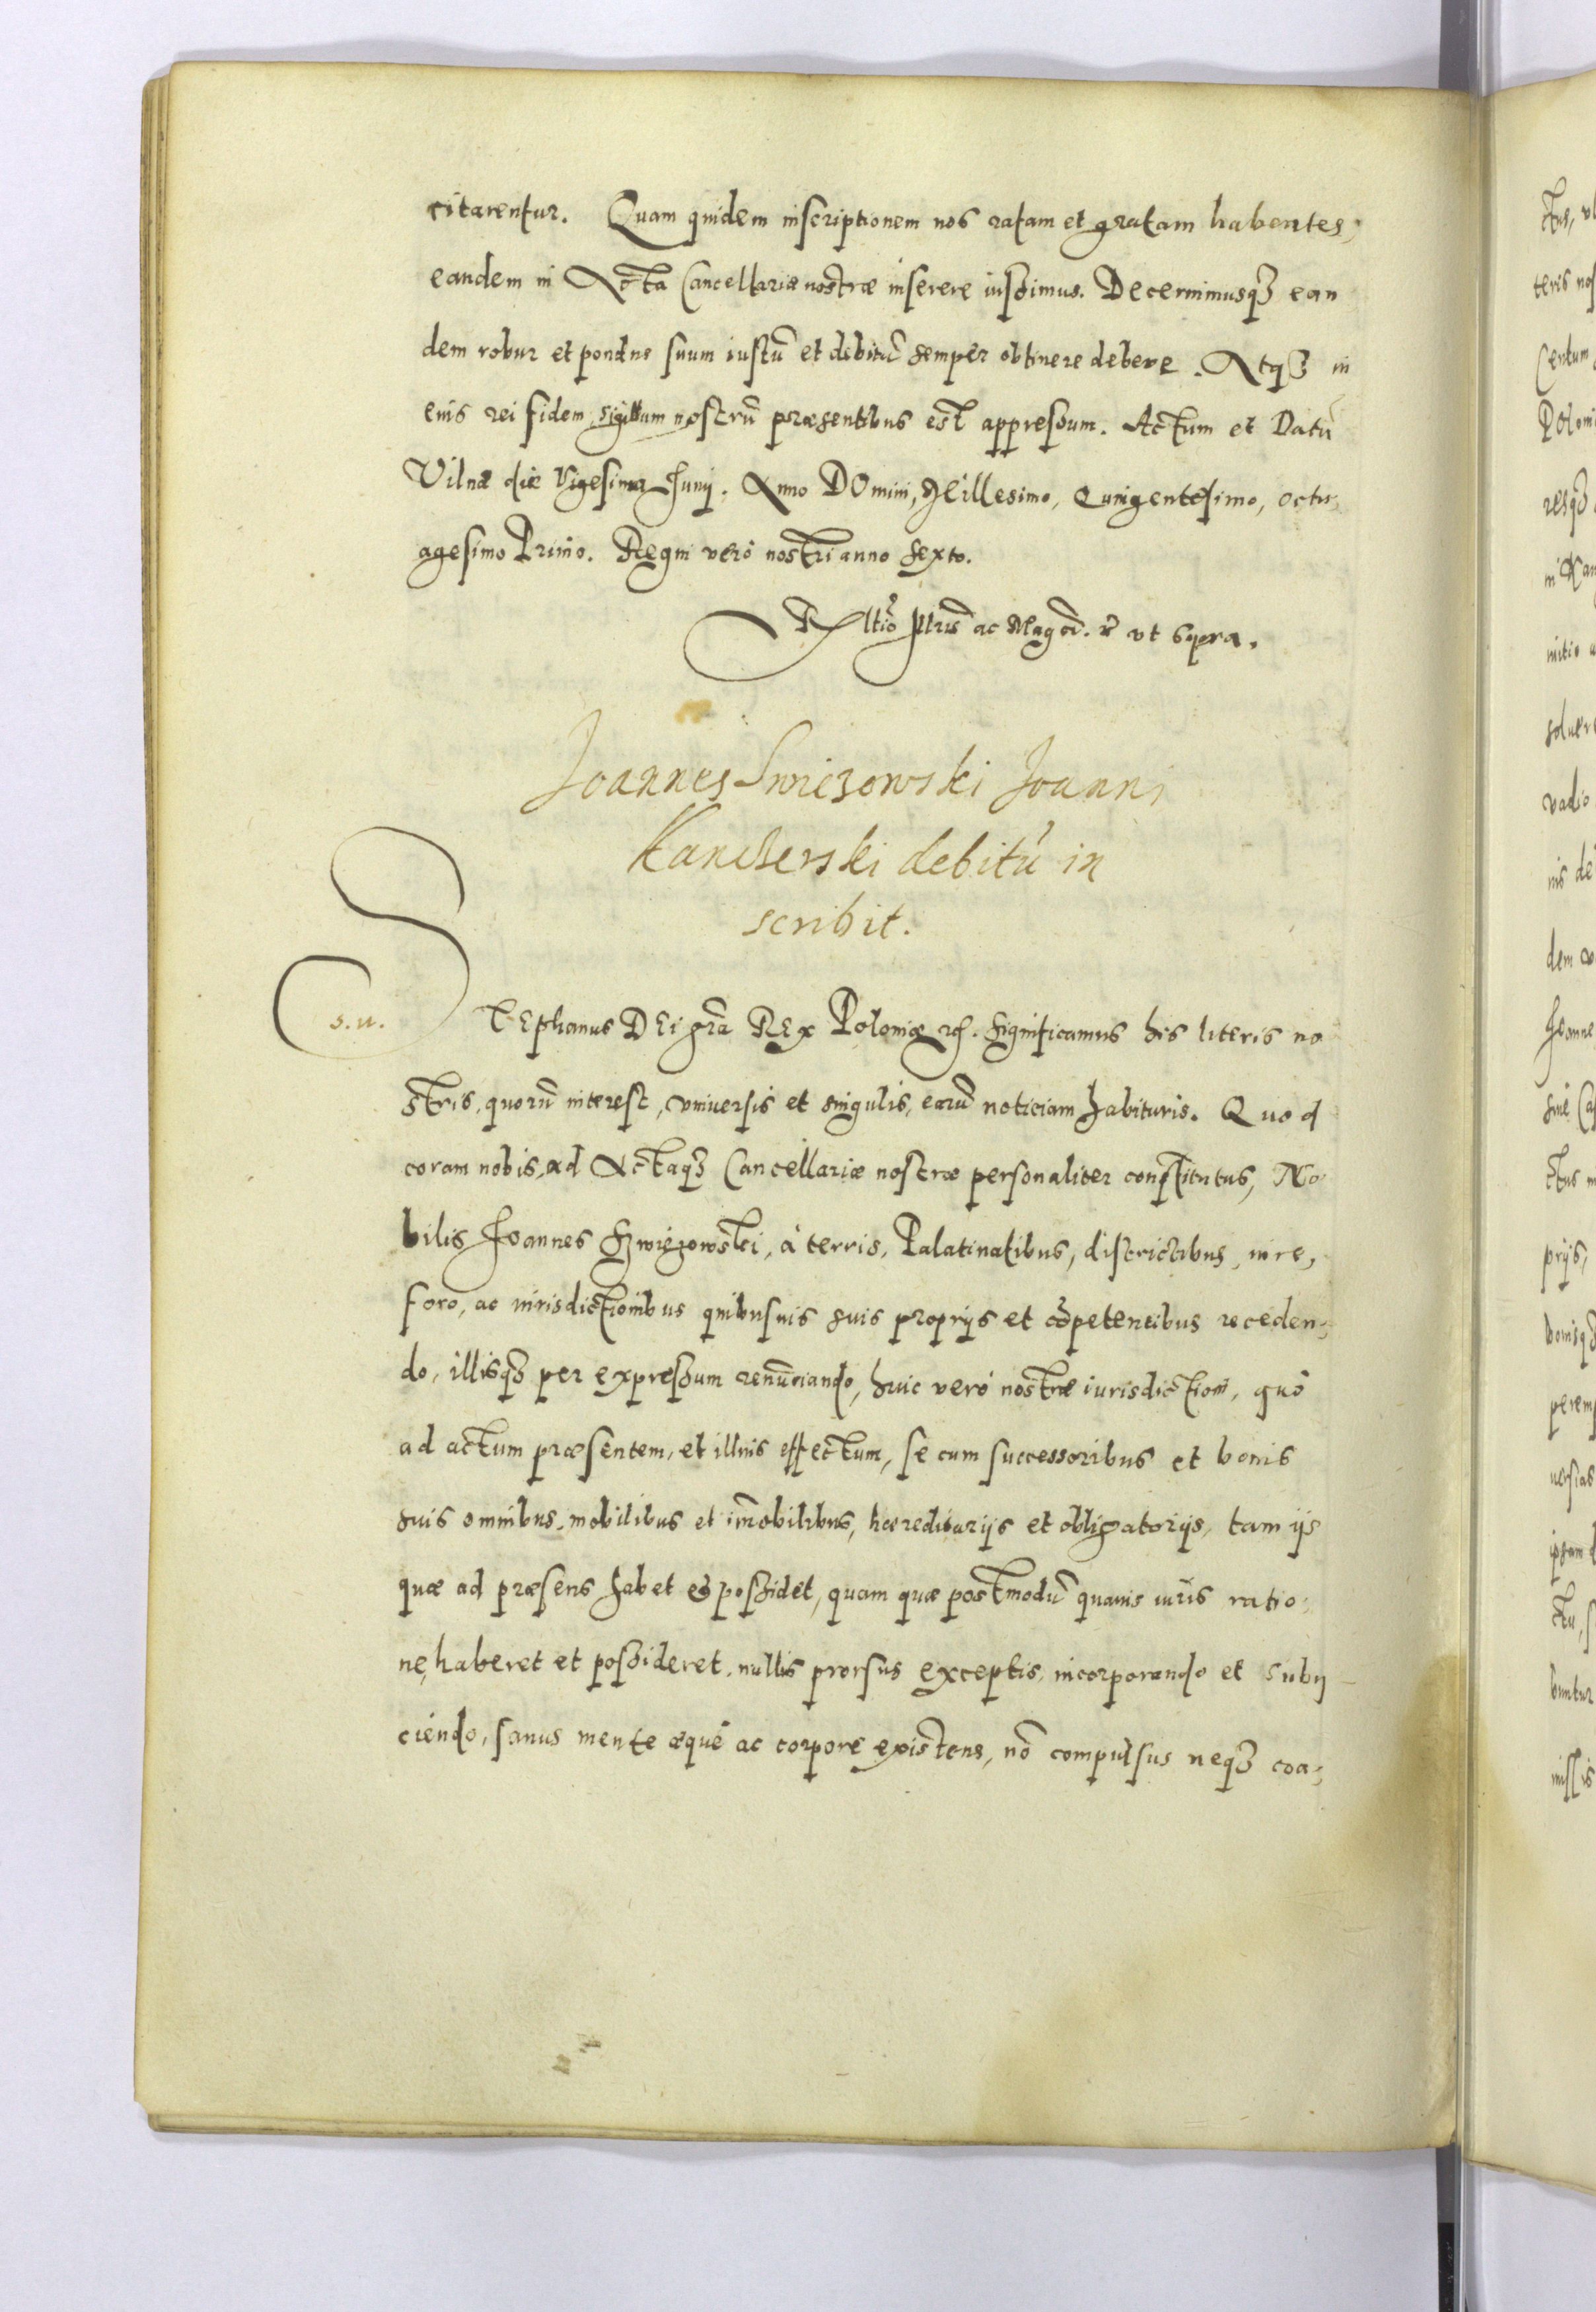 citarentur. Quam quidem inscriptionem nos ratam et gratam habentes,
eandem in Acta Cancellariæ nostræ inserere iussimus. Decernimusqȝ ean
dem robur et pondus suum iustū et debitū semper obtinere debere. Atqȝ in
eius rei fidem, sigillum nostrū præsentibus est appressum. Actum et Datū
Vilnæ die Vigesima Junij. Anno DOmini, Millesimo, Quingentesimo, octu-
agesimo Primo. Regni verò nostri anno sexto.
ac ut supra.
Joannes Swiezowski Joanni
debitū in
scribit.
s. n.
STEphanus DEi grã REx Poloniæ Significamus his literis no
stris, quorū interest, vniuersis et singulis, earū noticiam habituris. Quod
coram nobis, ad Actaqȝ Cancellariæ nostræ personaliter constitutus, No
bilis Joannes Szwiezowski, à terris, Palatinatibus, districtibus, iure,
foro, ac iurisdictionibus quibusuis suis proprijs et cōpetentibus receden-
do, illisqȝ per expressum renūciando, huic verò nostræ iurisdictioni, quò
ad actum præsentem, et illius effectum, se cum successoribus et bonis
suis omnibus, mobilibus et im̄obilibus, hæreditarijs et obligatorijs, tam ijs
quæ ad præsens habet et possidet, quam quæ postmodū quauis iuris ratio-
ne, haberet et possideret, nullis prorsus exceptis, incorporando et subij
ciendo, sanus mente æquè ac corpore existens, nō compulsus neqȝ coa-